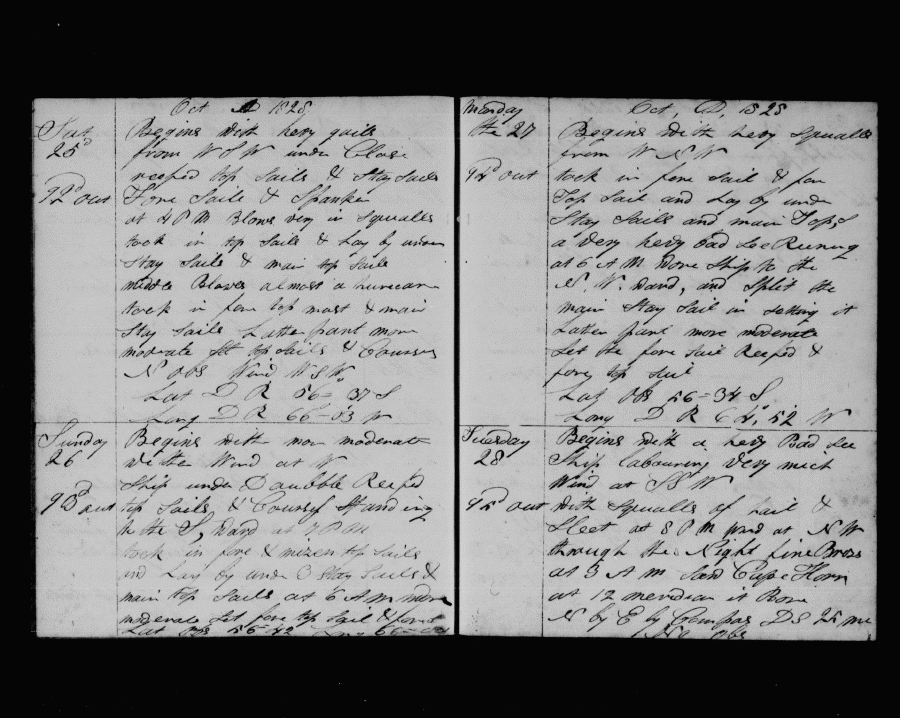 Oct AD 1828
Sat
25D
92D out
Begins with hevy gails
from W S W under Close
reefed top Sails & Stay Sails
Fore Sail & Spanker
at 4 P M Blows very in Squalls
took in top Sails & Lay by under
Stay Sails & main top Sails
middle Blows almost a hurecane
took in fore top mast & main
Stay Sails Latter part more
moderate Set top Sails & Courses
N obs Wind W S W
Lat D R 56 - 37 S
Long D R 66 - 53 W
Sunday
26
93D out
Begins with more moderate
wether Wind at W
Ship under Doubble Reefed
top Sails & Courses Standing
to the S, Ward at P M
took in fore & mizen top Sails
and Lay by under 3 Stay Sails &
main top Sails at 6 A M more
moderate Set fore top Sail & fore
Lat obs 56 - 42 Long 66
Monday
the 27
94D out
Oct, AD, 1828
Begins with hevy Squalls
from W N W
took in fore Sail & fore
Top Sail and Lay by under
Stay Sails and main Top,S
a very hevy bad See Runing
at 6 A M Wore Ship to the
N. W. Ward, and Split the
main Stay Sail in Setting it
Latter part more moderate
Set the fore Sail Reefed &
fore top Sail
Lat obs 56 - 34 S
Long D R 64, 52 W
Tuesday
28
95D out
Begins with a hevy Bad See
Ship labouring very much
Wind at S W
with Squalls of hail &
Sleet at 8 P M wind at N W
through the Night fine Breeze
at 3 A M Saw Cape Horn
at 12 meridean it Bore
N by E by Compas DS 25 me
No obs